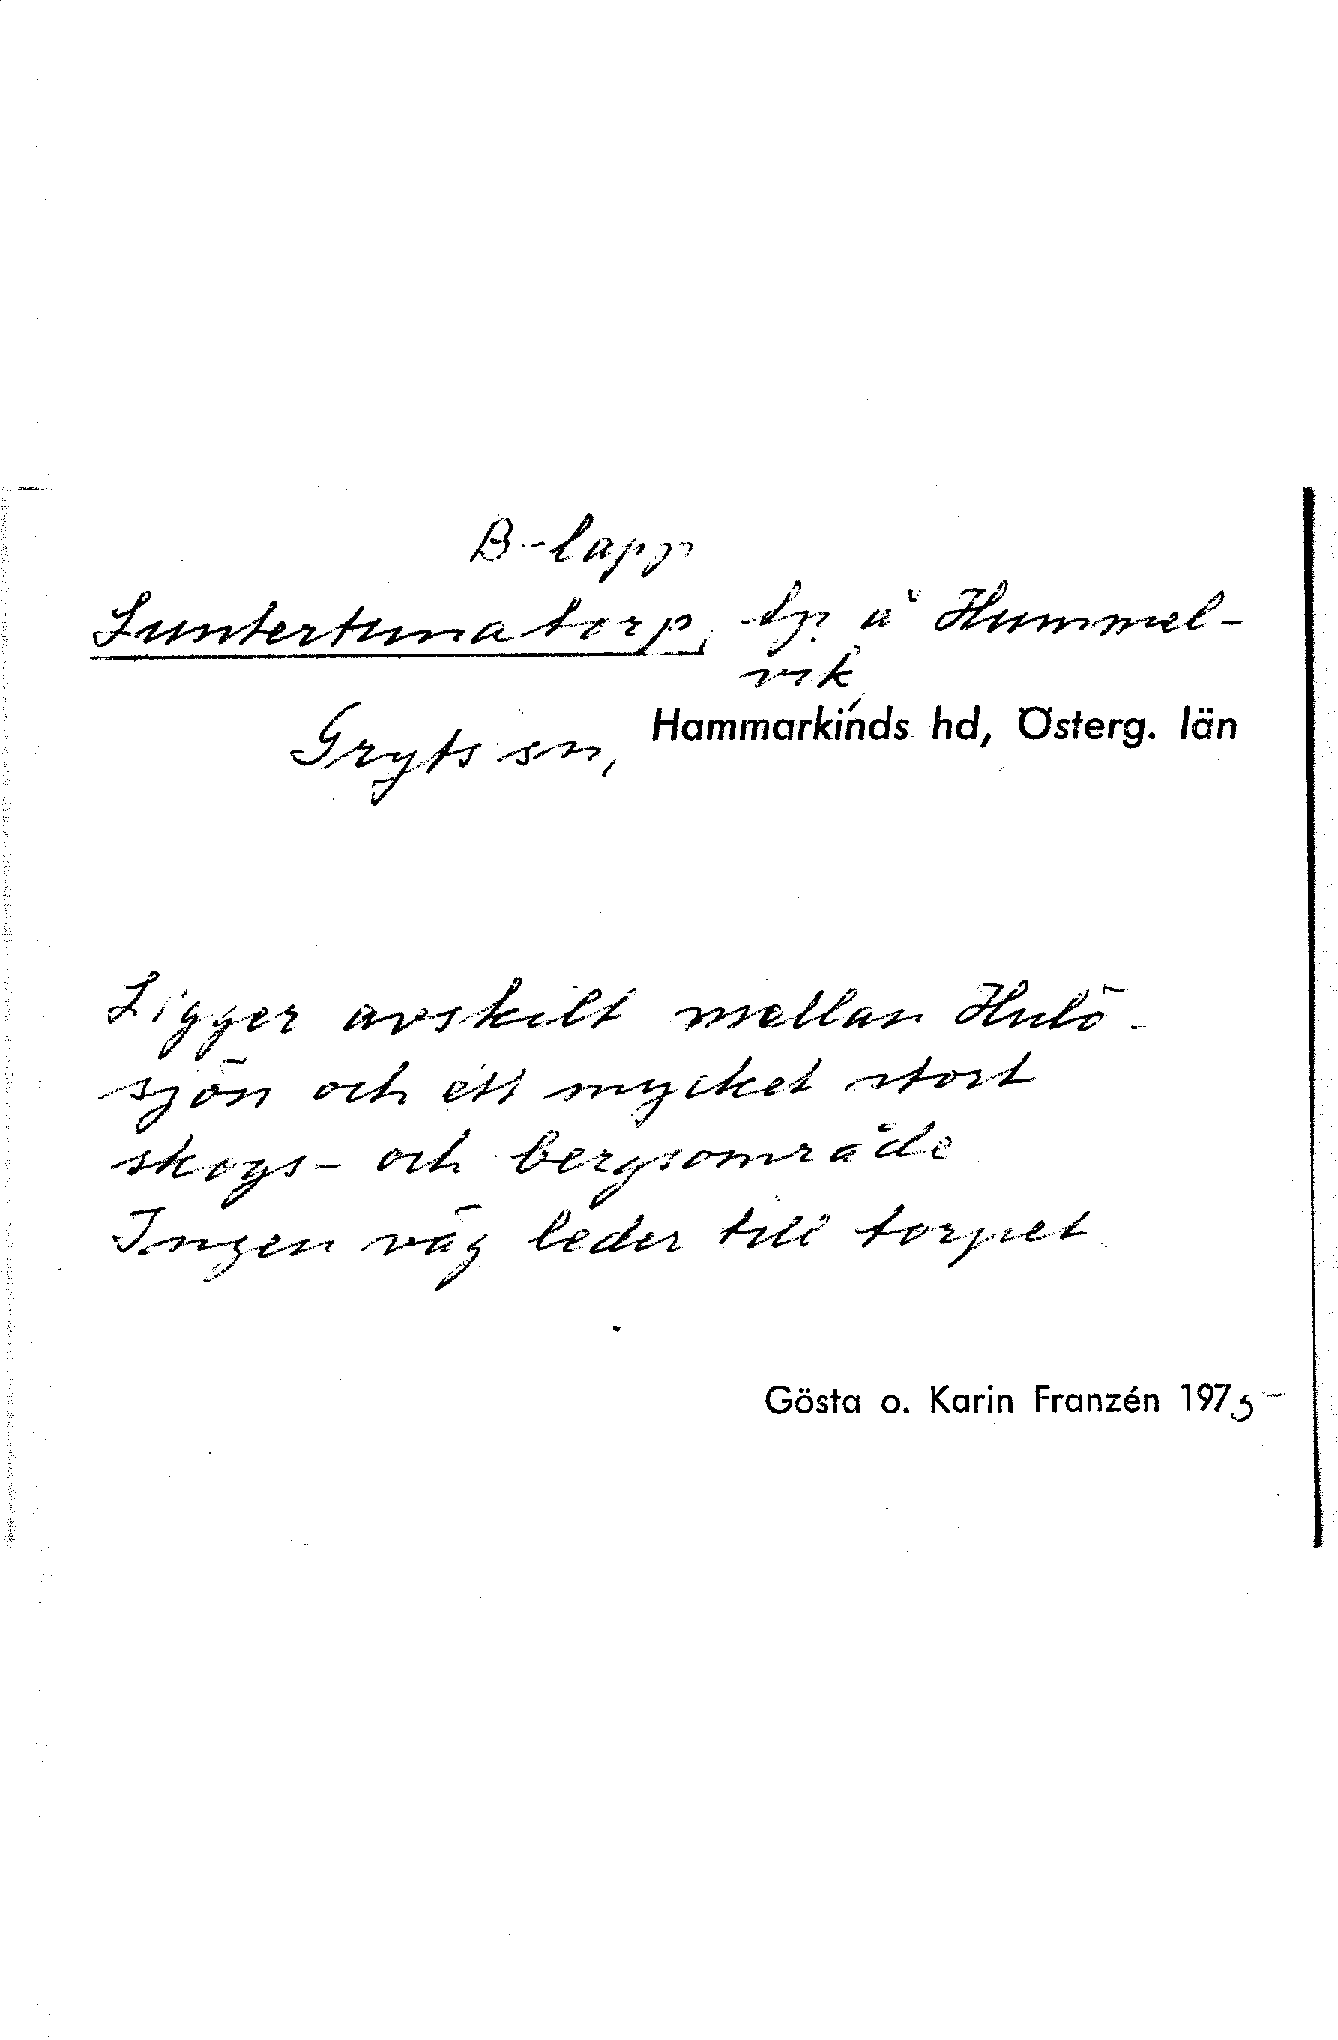 B-lapp
Luntertunatorp, tp å Hummel-
vik,
Gryts sn, Hammarkinds hd, Österg. län
Ligger avskilt mellan Hulö-
sjön och ett mycket stort
skogs- och bergsområde
Ingen väg leder till torpet
Gösta o. Karin Franzén 1975